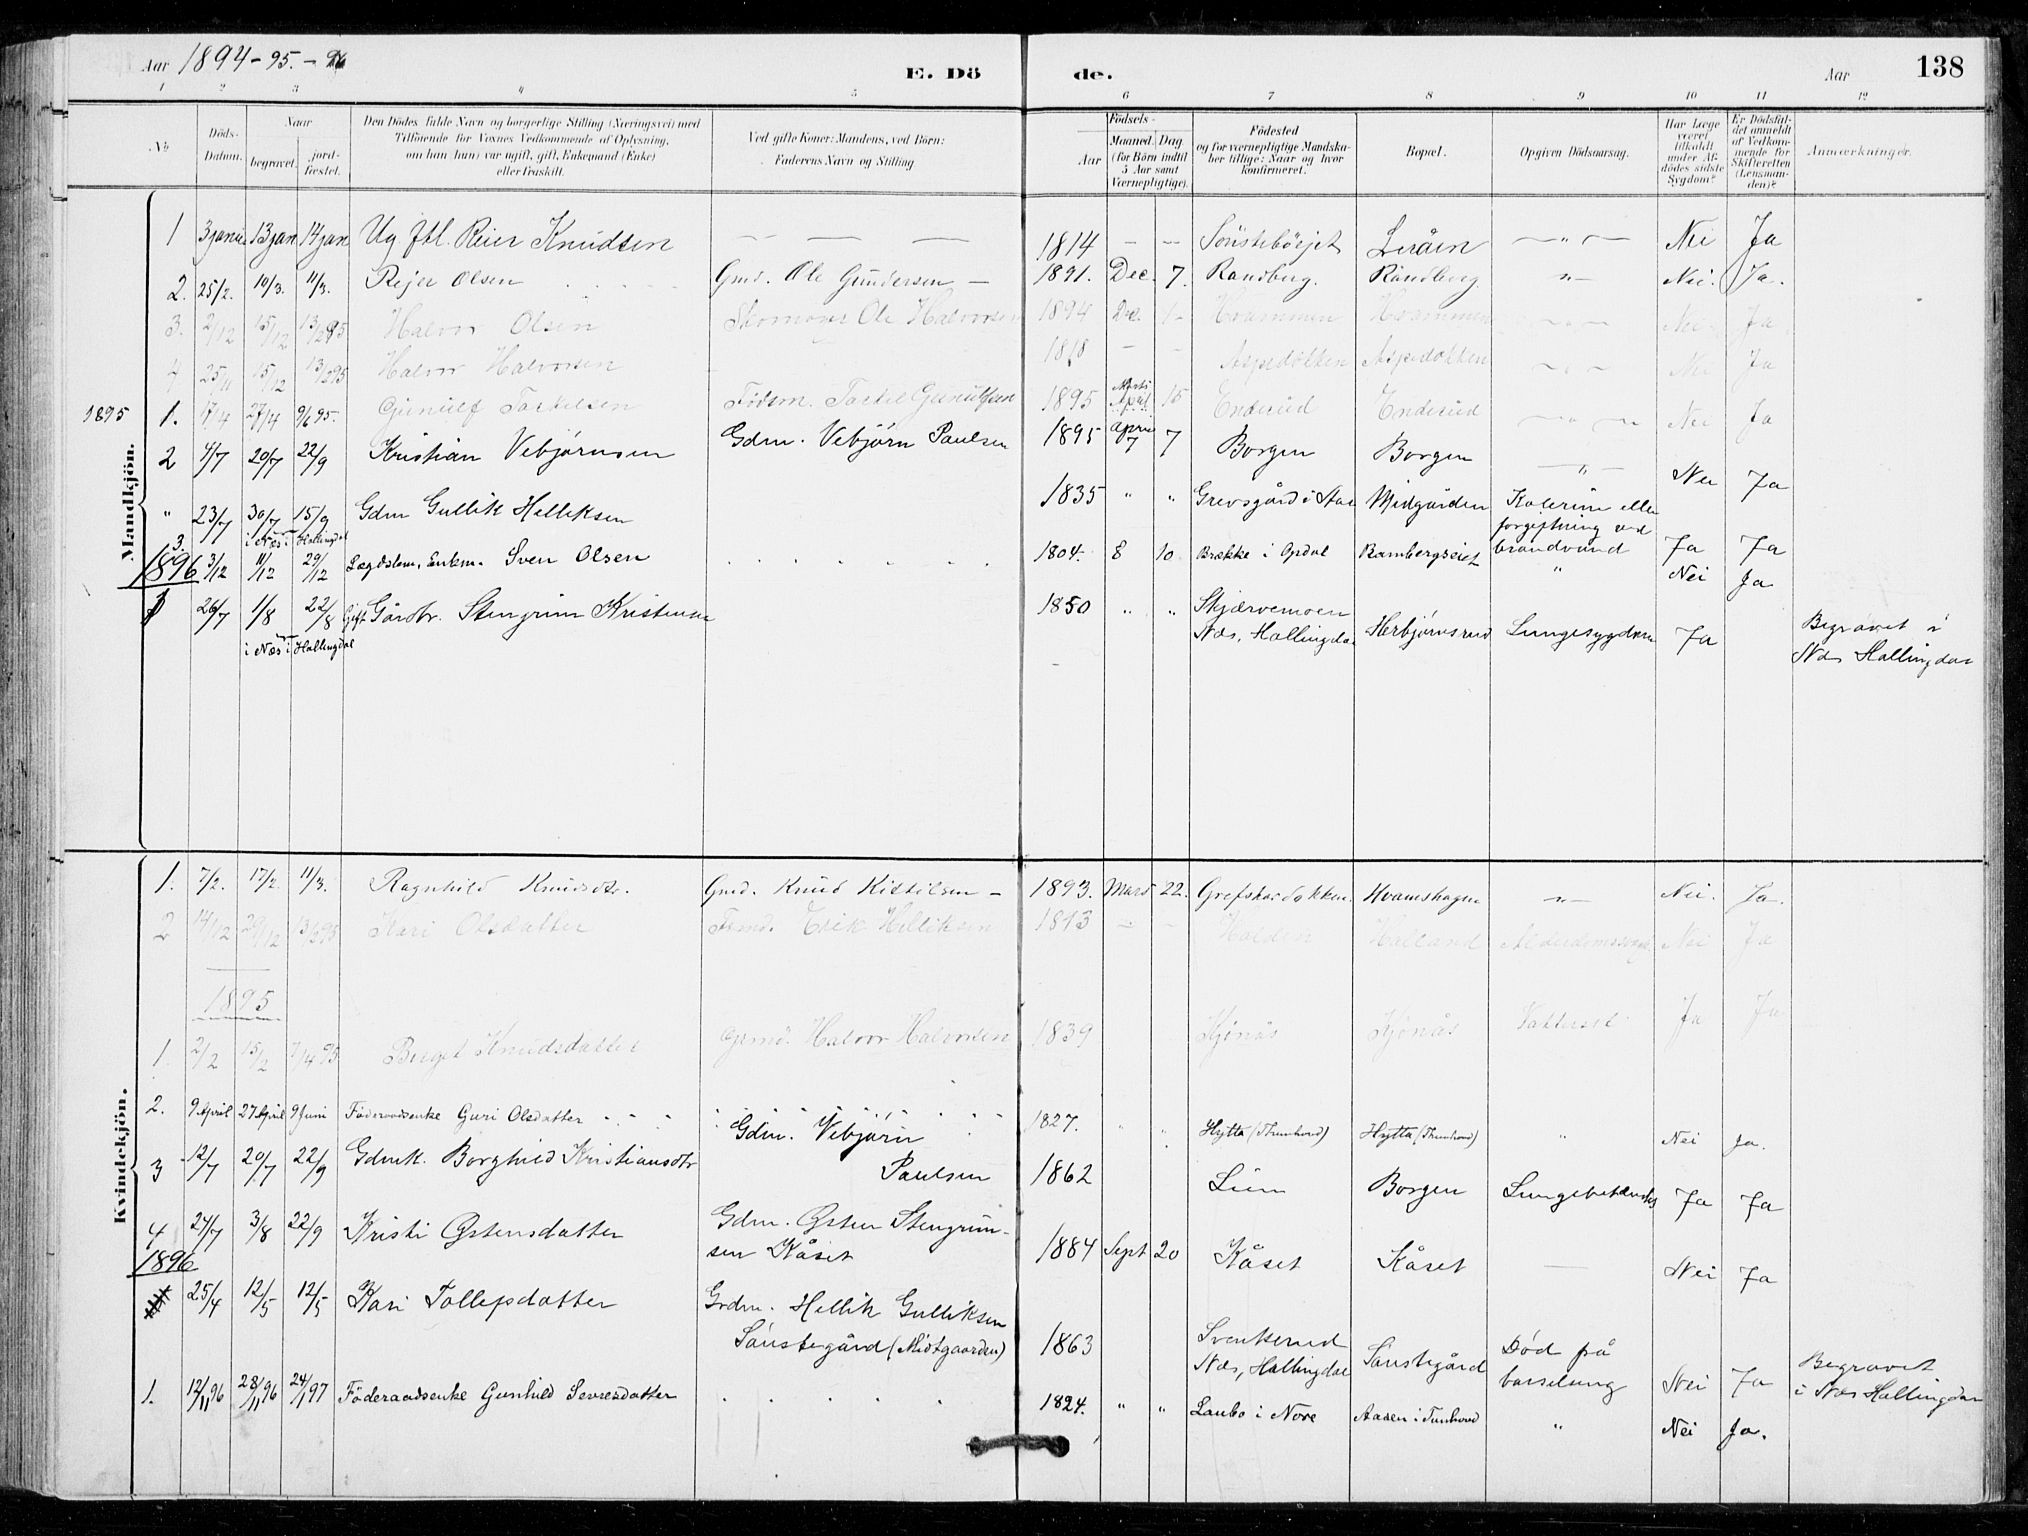 Aar 1894-95.-96 E. Dö de. Aar 138
1 2 3 4 5 6 7 8 9 10 11 12
No
Döds-Datum.
Naar
begravet. jordfæstet.
Den Dödes fulde Navn og borgerlige Stilling (Næringsvei) med
Tilföiende for Voxnes Vedkommende af Oplysning,
om han (hun) var ugift, gift, Enkemand (Enke)
eller fraskilt.
Ved gifte Koner: Mandens, ved Börn:
Faderens Navn og Stilling
Födsels-
Aar Maaned. Dag
(for Börn indtil
5 Aar samt
Værnepligtige).
Födested
og for værnepligtige Mandska-
ber tillige: Naar og hvor
konfirmeret.
Bopæl.
Opgiven Dödsaarsag.
Har Læge
været
tilkaldt
under Af-
dödes sidste
Sygdom?
Er Dödsfal-
det anmeldt
af Vedkom-
mende for
Skifteretten
(Lensman-
den)?
Anmærkninger.
Mandkjön.
1 3 janu. 13 jan 14 jan Ug ftl. Reier Knudsen — — — 1814 — — Sönsteböejet — " — Nei Ja
2. 25/2. 10/3. 11/3. Rejer Olsen Gmd. Ole Gundersen — 1891. Dec. 7. Randberg. Randberg " Nei. Ja.
3. 2/12 15/12 13/2 95 Halvor Olsen Skomager Ole Halvorsen 1894 Dec. 1 Hvammen Hvammen Nei Ja
4 25/11 15/12 13/2 95 Halvor Halvorsen 1818 — — Aspedokken Aspedokken Nei Ja
1895 1. 17/4 27/4 9/6 95. Gunulf Torkilsen Födsm. Torkel Gunulfsen 1895 April 15 Enderud Enderud Nei Ja
2 4/7 20/7 22/9 Kristian Vebjørnsen Gdm. Vebjørn Paulsen 1895 April 7 7 Borgen Borgen — " — Nei Ja
" 3. 23/7 30/7 15/9 Gdm Gullik Helliksen 1835 " " Grevsgård i Aal Midgården Kolerine eller
forgiftning ved
brandvand Ja Ja
i Næs i Hallingdal
1896 3/12 11/12 29/12 Lægdslem, Enkm. Sven Olsen 1804. 8 10. Brække i Opdal Rambergseiet " Nei Ja
1 26/7 1/8 22/8 Gift Gårdbr. Stengrim Kristensen 1850 " " Skjærvemoen
Næs, Hallingdal Herbjørnsrud Lungesygdom Ja Begravet i
Næs Hallingdal
i Næs i Hallingdal
Kvindekjön.
1. 7/2. 17/2. 11/3. Ragnhild Knudsdt. Gmd. Knud Kittilsen — 1893. Mars 22. Grefshardokken Hvamshagen " Nei. Ja.
2 14/12 29/12 13/2 95 Kari Olsdatter Erik Helliksen 1813 — — Halden Halland Nei Ja
1895
1. 2/2 15/2 7/4 95 Birget Knudsdatter Grmd. Halvor Halvorsen 1839 Kjönås Kjönås Vattersot Ja Ja
2. 9 April 27 April 9 Juni Föderaadsenke Guri Olsdatter 1827. " " Hytta (Thunhovd) Hytta (Thunhovd) " Nei Ja.
3 12/7 20/7 22/9 Gdmk. Borghild Kristiansdtr Gdm. Vebjørn
Paulsen 1862 Liim Borgen Lungebetændelse Ja Ja
4 24/7 3/8 22/9 Kristi Østensdatter Gdm. Østen Stengrim-
sen Kåset 1884 Sept 20 Kåset Kåset — Nei Ja
1896
25/4 12/5 12/5 Kari Tollefsdatter Grdm. Hellik Gulliksen
Sönstegård (Midtgaarden) 1863 Svenkerud
Næs, Hallingdal Sönstegård Död på
barselseng Nei Ja Begravet
i Næs Hallingdal
1. 12/11 96 28/11 96 24/1 97 Föderaadsenke Gunhild Sevresdatter 1824. " " Laubo i Nore Aasen i Tunhovd " Nei Ja.